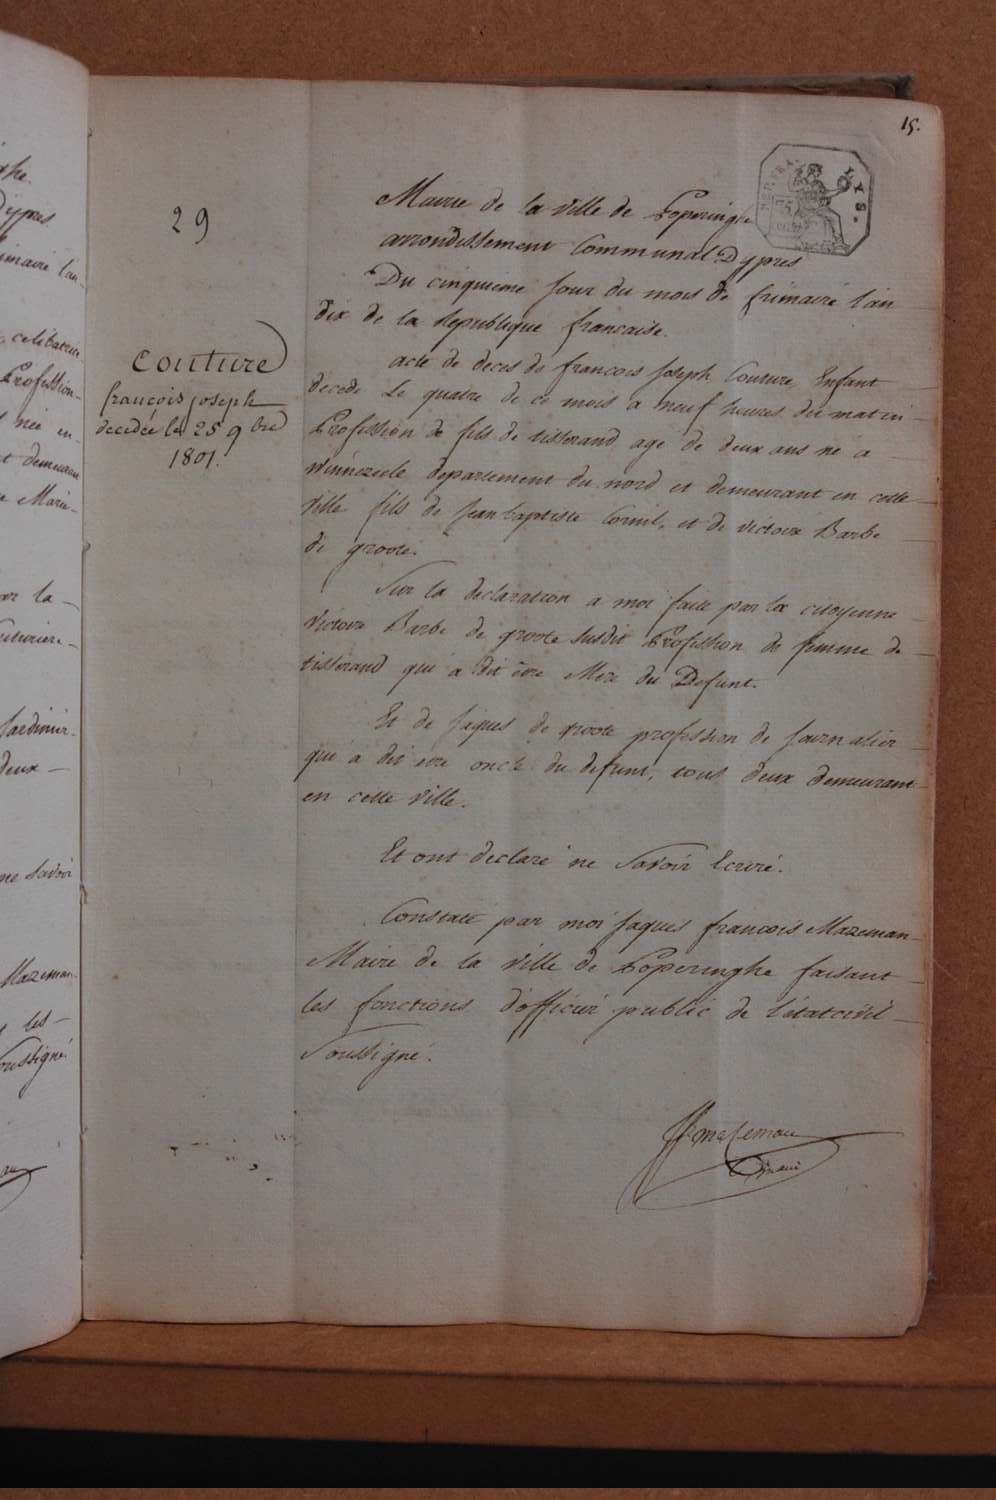 15.
REP. FRA.
LYS.
Mairie de la Ville de Poperinghe
arrondissement Communal Dypres
29
Du cinquieme Jour du mois de frimaire l'an
dix de la Republique francaise.
Couture
françois joseph
decedée le 25 9bre
1801.
acte de deces de francois Joseph Couture Enfant
décédé Le quatre de ce mois a neuf heures du matin
Profession de fils de tisserand agé de deux ans né à
winnezeele departement du nord et demeurant en cette
Ville fils de Jean baptiste Cornil, et de victoire Barbe
de groote.
Sur la declaration a moi faite par la citoyenne
Victoire Barbe de groote Susdit Profession de femme de
tisserand qui a dit être Mere du Defunt.
Et de Jaques de groote profession de Journalier
qui a dit etre oncle du defunt, tous deux demeurant
en cette ville.
Et ont declaré ne Savoir Ecrire.
Constaté par moi Jaques francois Mazeman
Maire de la Ville de Poperinghe faisant
les fonctions d'officier public de l'état civil
Soussigné.
JF mazeman
maire
ghe
Dypres
imaire l'an
celibataire
Profession
née en
t demeurant
Marie
la
uturiere
Jardinier
deux
ne savoir
Mazeman
les
oussigné